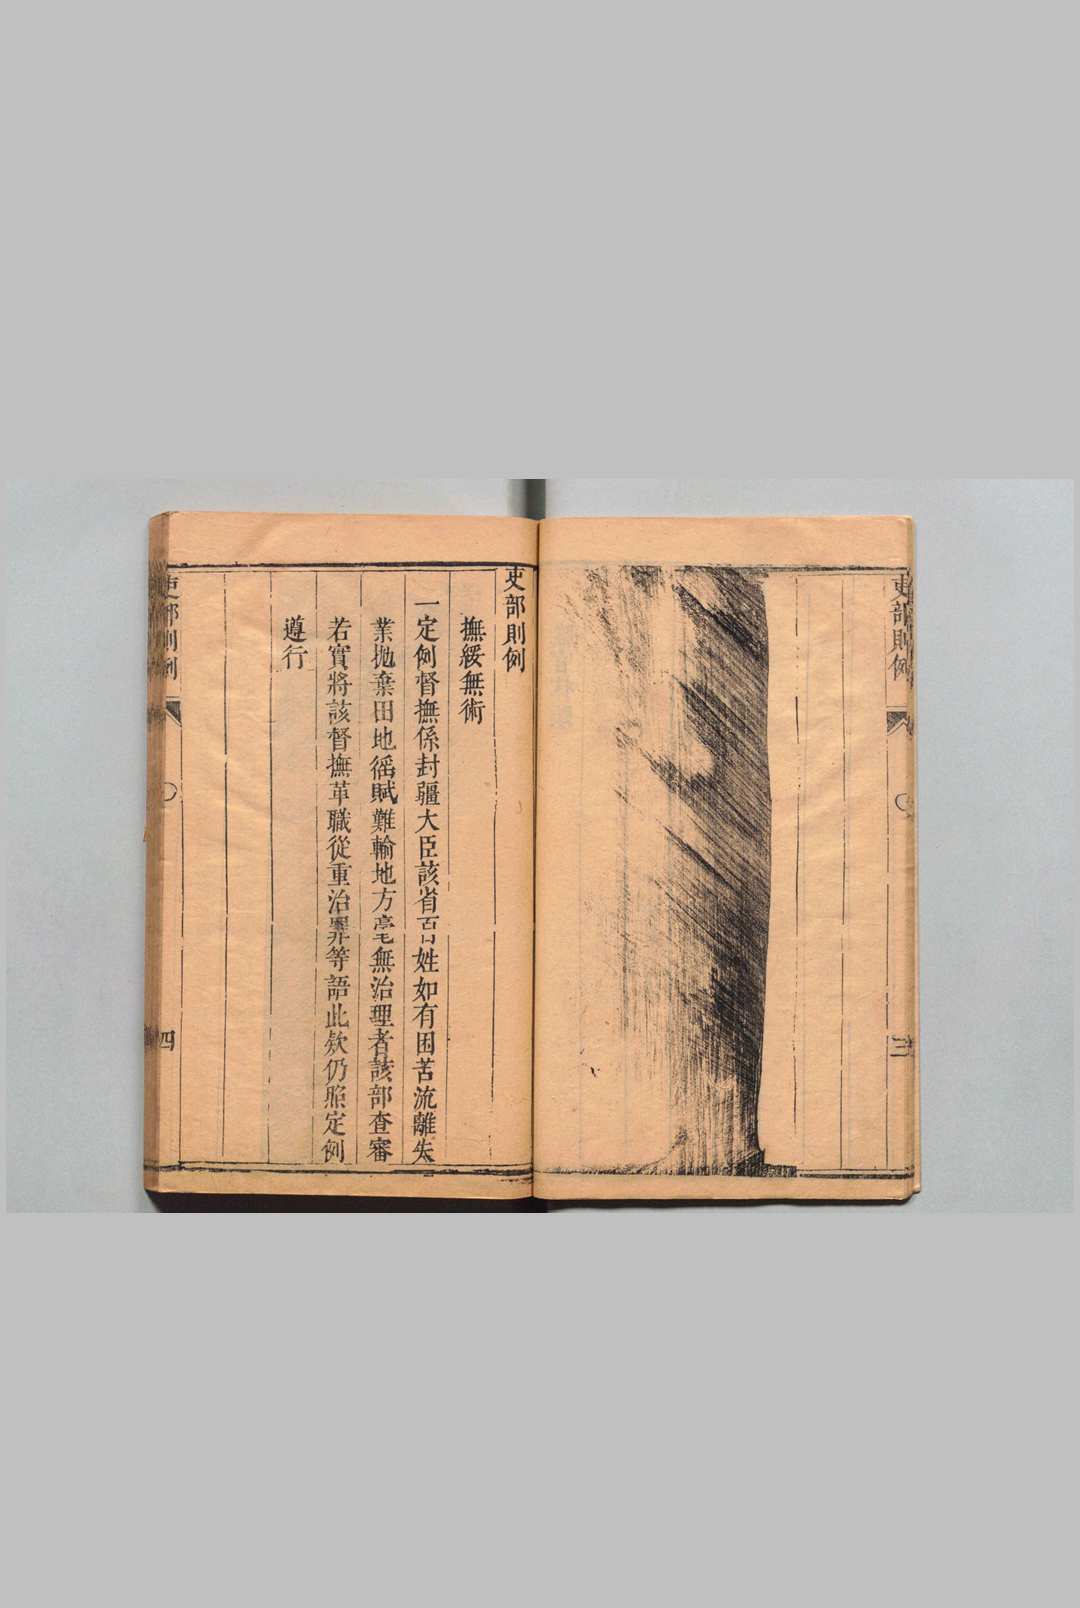 吏部則例
三
吏部則例
撫綏無術
一定例督撫係封疆大臣該省百姓如有困苦流離失
業抛棄田地徭賦難輸地方毫無治理者該部查審
若實將該督撫革職從重治罪等語此欵仍照定例
遵行
吏部則例
四